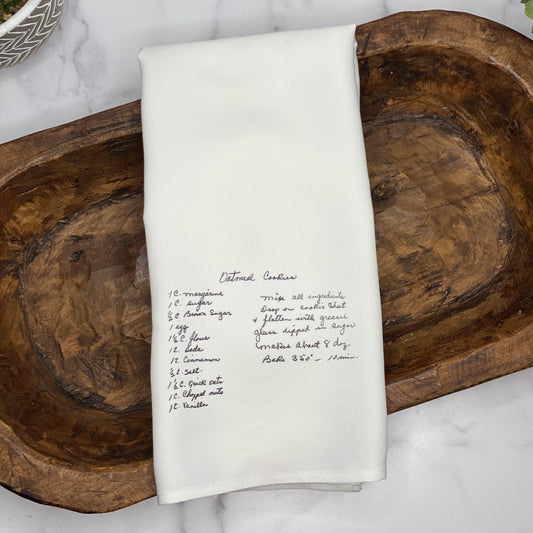 Oatmeal Cookies
1 C. margarine
1 C. sugar
½ C Brown Sugar
1 egg
1½ C. flour
1 t. Soda
1 t. Cinnamon
½ t. Salt
1½ C. Quick oats
1 C. Chopped nuts
1 t. Vanilla
Mix all ingredients
Drop on cookie sheet
& flatten with greased
glass dipped in sugar
Makes about 8 dz.
Bake 350° - 10 min.